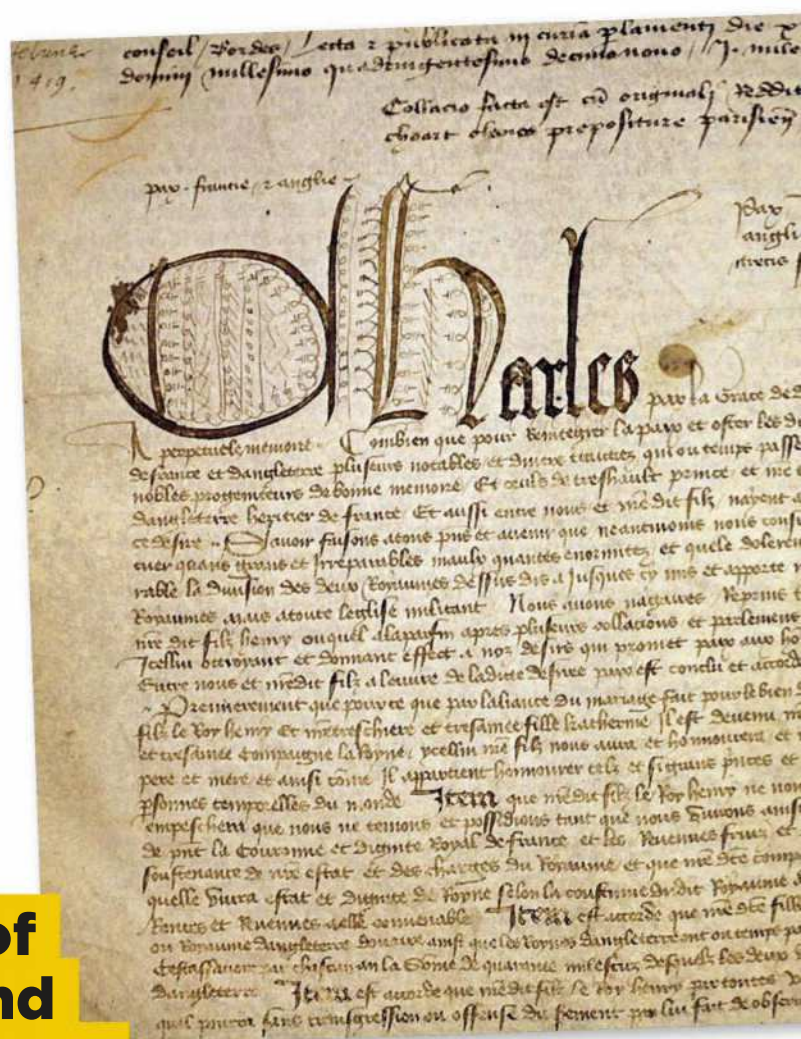 1419.
conseil / Bordes / Lecta z publicata in curia plamenti die x
domini millesimo quadringentesimo decimo nono / J. mile
Collacio facta est cu originali Reddit
choart clerics prepositure parisien
pax francie z anglie
pax
angli
Charles par la Grace de d
A perpetuele memoire Combien que pour Reintegrer la paix et oster les di
de france et dangleterre plusieurs notables et divers traictiez qui ou temps passe
nobles progeniteurs de bonne memoire Et ceulx de treshault prince et nre
dangleterre heritier de france Et aussi entre nous et nre dit filz nayent
ce desire Savoir faisons a tous pns et avenir que neantmoins nous consi
quans grans et Irreparables maulx quantes enormitez et quele dolereu
rable la division des deux Royaumes dessus dis a Jusques cy mis et apporte
Royaumes mais a toute leglise militant Nous avons nagaires Reprins
nre dit filz henry ouquel a la parfin apres plusieurs collacions et parlemens
Icellui octroyant et donnant effect a noz desirs qui promet paix aux ho
Entre nous et nre dit filz a leuvre de ladicte desiree paix est conclu et accorde
Premierement que pource que par laliance du mariage fait pour le bien d
filz le Roy henry et nre treschiere et tresamee fille katherine Il est devenu
et tresamee Compaigne la Royne, ycellui nre filz nous aura et honnourera et
pere et mere et ainsi come Il appartient honnourer telz et si grans princes et
psonnes temporelles du monde Item que nre dit filz le Roy henry ne
empeschera que nous ne tenons et possidions tant que nous vivrons ainsi
de pnt la Couronne et dignite Royal de france et les Revenues fruiz et
soustenance de nre estat et des charges du Royaume et que nre dce comp
quelle vivra estat et dignite de Royne selon la coustume dudit Royaume
Rentes et Revenues a elle convenable Item est accorde que nre dce fille
ou Royaume dangleterre douaire ainsi que les Roynes dangleterre ont ou temps pa
Cestassavoir par chascun an la Some de quarante mil escuz desquelz les deux
dangleterre Item est accorde que nre dit filz le Roy henry par toutes
quil pourra sans transgression ou offense du serement par lui fait de observ
of
nd